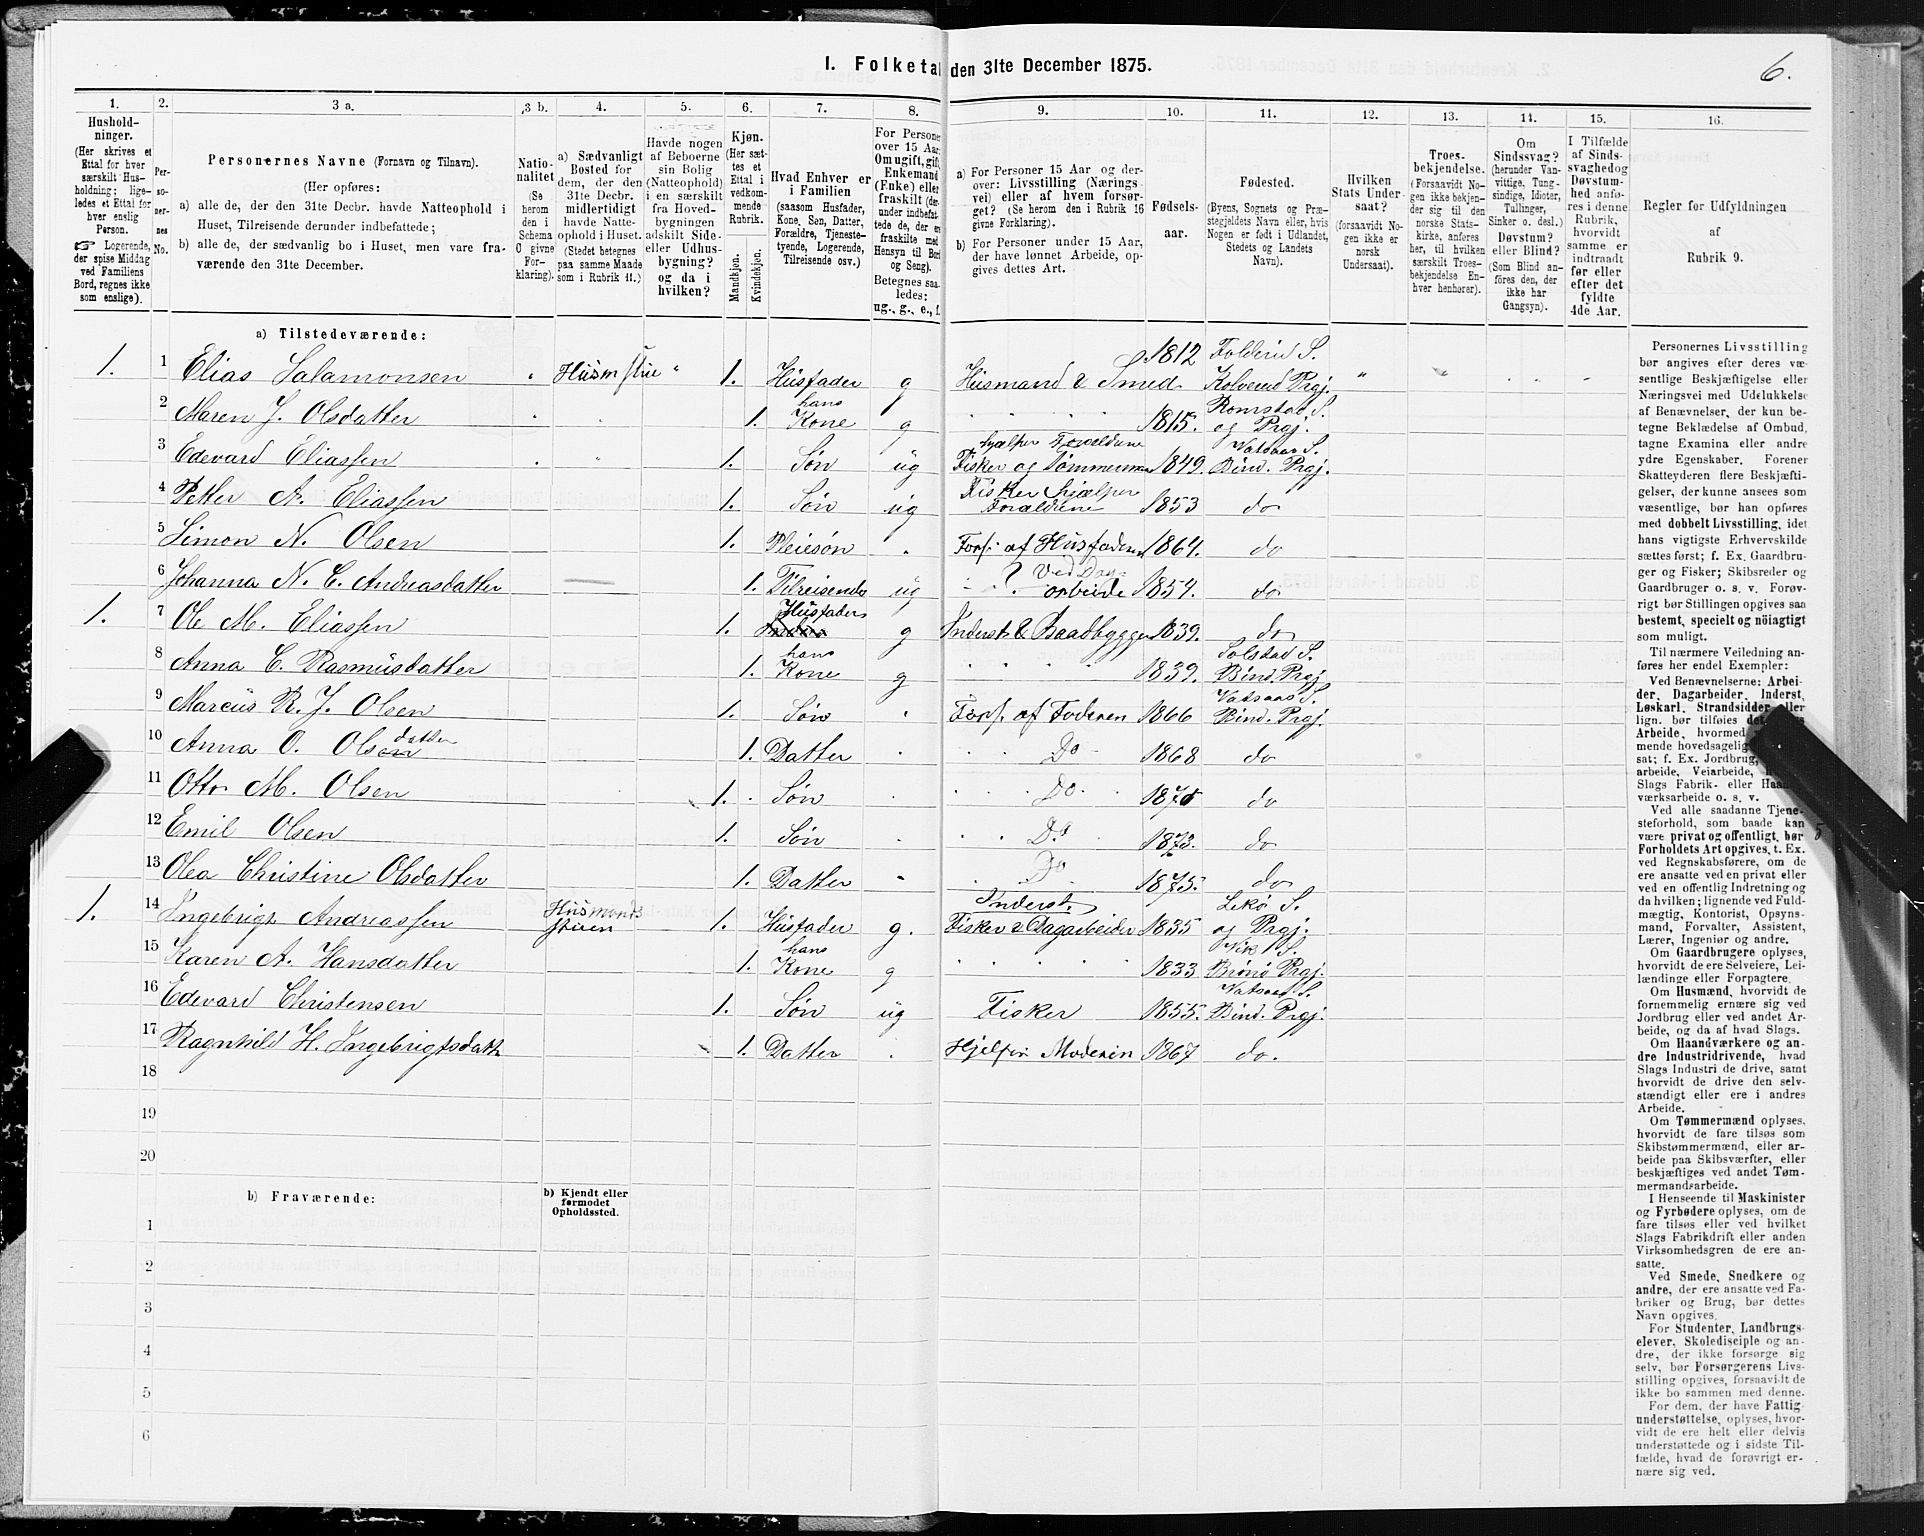 I. Folketal den 31te December 1875.
6.
1.
2.
3 a.
3 b.
4.
5.
6.
7.
8.
9.
10.
11.
12.
13.
14.
15.
16.
Hushold-
ninger.
(Her skrives et
Ettal for hver
særskilt Hus-
holdning; lige-
ledes et Ettal for
hver enslig
Person.
Logerende,
der spise Middag
ved Familiens
Bord, regnes ikke
som enslige).
Per-
so-
ner-
nes
No.
Personernes Navne (Fornavn og Tilnavn).
(Her opføres:
a) alle de, der den 31te Decbr. havde Natteophold i
Huset, Tilreisende derunder indbefattede;
b) alle de, der sædvanlig bo i Huset, men vare fra-
værende den 31te December.
Natio-
nalitet
(Se
herom
den i
Schema
C givne
For-
klaring).
a) Sædvanligt
Bosted for
dem, der den
31te Decbr.
midlertidigt
havde Natte-
ophold i Huset.
(Stedet betegnes
paa samme Maade
som i Rubrik 11.)
Havde nogen
af Beboerne
sin Bolig
(Natteophold)
i en særskilt
fra Hoved-
bygningen
adskilt Side-
eller Udhus-
bygning?
og da i
hvilken?
Kjøn.
(Her sæt-
tes et
Ettal i
vedkom-
mende
Rubrik.
Mandkjøn.
Kvindekjøn.
Hvad Enhver er
i Familien
(saasom Husfader,
Kone, Søn, Datter,
Forældre, Tjeneste-
tyende, Logerende,
Tilreisende osv.)
For Personer
over 15 Aar:
Om ugift, gift,
Enkemand
(Enke) eller
fraskilt (der-
under indbefat-
tede de, der ere
fraskilte med
Hensyn til Bord
og Seng).
Betegnes saa-
ledes:
ug., g., e., f.
a) For Personer 15 Aar og der-
over: Livsstilling (Nærings-
vei) eller af hvem forsør-
get? (Se herom den i Rubrik 16
givne Forklaring).
b) For Personer under 15 Aar,
der have lønnet Arbeide, op-
gives dettes Art.
Fødsels-
aar.
Fødested.
(Byens, Sognets og Præ-
stegjeldets Navn eller, hvis
Nogen er født i Udlandet,
Stedets og Landets
Navn).
Hvilken
Stats Under-
saat?
(forsaavidt No-
gen ikke er
norsk
Undersaat).
Troes-
bekjendelse.
(Forsaavidt No-
gen ikke bekjen-
der sig til den
norske Stats-
kirke, anføres
her, til hvilken
særskilt Troes-
bekjendelse En-
hver henhører).
Om
Sindssvag?
(herunder Van-
vittige, Tung-
sindige, Idioter,
Tullinger,
Sinker o. desl.)
Døvstum?
eller Blind?
(Som Blind an-
föres den, der
ikke har
Gangsyn).
I Tilfælde
af Sinds-
svaghed og
Døvstum-
hed anfø-
res i denne
Rubrik,
hvorvidt
samme er
indtraadt
før eller
efter det
fyldte
4de Aar.
Regler for Udfyldningen
af
Rubrik 9.
a) Tilstedeværende:
1. 1 Elias Salamonsen " Husmstue " 1. Husfader g Husmand & Smed 1812 Folderid S. Kolvereid Prgj. " " " "
2 Maren J. Olsdatter 1. hans Kone g 1815. Romstad S. og Prgj.
3 Edevard Eliassen 1. Søn ug hjælper Forældrene Fisker og Tømmerman 1849. Vatsaas S. Bind. Prgj.
4 Petter A. Eliassen 1. Søn ug Fisker hjælper Forældrene 1853 do
5 Simon N. Olsen 1. Pleiesøn Fors. af Husfaderen 1864. do
6 Johanna N. C. Andreasdatter 1. Tilreisende ug ved Dagarbeide 1854. do
1. 7 Ole M. Eliassen 1. Husfader g Inderst & Baadbygger 1839. do
8 Anna C. Rasmusdatter 1. hans Kone g 1839. Solstad S. Bind. Prgj
9 Marcus R. J. Olsen 1. Søn Fors. af Faderen 1866 Vatsaas S. Bind. Prgj.
10 Anna O. Olsdatter 1. Datter Do 1868 do
11 Otto M. Olsen 1. Søn Do 1870 do
12 Emil Olsen 1. Søn Do 1873. do
13 Olea Christine Olsdatter 1. Datter Do 1875. do
1. 14 Ingebrigt Andreassen Husmandsstuen 1. Husfader g. Inderst. Fisker & Dagarbeider 1835 Lekø S. og Prgj.
15 Karen A. Hansdatter 1. hans Kone g 1833 Vik S. Brönö Prgj.
16 Edevard Christensen 1. Søn ug Fisker 1855. Vatsaas S. Bind. Prgj.
17 Ragnhild H. Ingebrigtsdatt 1. Datter Hjelper Moderen 1867 do.
18
19
20
b) Fraværende:
b) Kjendt eller
formodet
Opholdssted.
1
2
3
4
5
6
Personernes Livsstilling
bør angives efter deres væ-
sentlige Beskjæftigelse eller
Næringsvei med Udelukkelse
af Benævnelser, der kun be-
tegne Beklædelse af Ombud,
tagne Examina eller andre
ydre Egenskaber. Forener
Skatteyderen flere Beskjæfti-
gelser, der kunne ansees som
væsentlige, bør han opføres
med dobbelt Livsstilling, idet
hans vigtigste Erhvervskilde
sættes først; f. Ex. Gaardbru-
ger og Fisker; Skibsreder og
Gaardbruger o. s. v. Forøv-
rigt bør Stillingen opgives saa
bestemt, specielt og nöiagtigt
som muligt.
Til nærmere Veiledning an-
føres her endel Exempler:
Ved Benævnelserne: Arbei-
der, Dagarbeider, Inderst,
Løskarl, Strandsidder eller
lign. bør tilføies
Arbeide, hvormed
mende hovedsagelig
sat; f. Ex. Jordbrug,
arbeide, Veiarbeide,
Slags Fabrik- eller Haand-
værksarbeide o. s. v.
Ved alle saadanne Tjene-
steforhold, som baade kan
være privat og offentligt, bør
Forholdets Art opgives, t. Ex.
ved Regnskabsførere, om de
ere ansatte ved en privat eller
ved en offentlig Indretning og
da hvilken; lignende ved Fuld-
mægtig, Kontorist, Opsyns-
mand, Forvalter, Assistent,
Lærer, Ingeniør og andre.
Om Gaardbrugere oplyses,
hvorvidt de ere Selveiere, Lei-
lændinge eller Forpagtere.
Om Husmænd, hvorvidt de
fornemmelig ernære sig ved
Jordbrug eller ved andet Ar-
beide, og da af hvad Slags.
Om Haandværkere og an-
dre Industridrivende, hvad
Slags Industri de drive, samt
hvorvidt de drive den selv-
stændigt eller ere i andres
Arbeide.
Om Tømmermænd oplyses,
hvorvidt de fare tilsøs som
Skibstømmermænd, eller ar-
beide paa Skibsværfter, eller
beskjæftiges ved andet Tøm-
mermandsarbeide.
I Henseende til Maskinister
og Fyrbødere oplyses, om de
fare tilsøs eller ved hvilket
Slags Fabrikdrift eller anden
Virksomhedsgren de ere an-
satte.
Ved Smede, Snedkere og
andre, der ere ansatte ved Fa-
briker og Brug, bør dettes
Navn opgives.
For Studenter, Landbrugs-
elever, Skoledisciple og an-
dre, der ikke forsørge sig
selv, bør Forsørgerens Livs-
stilling opgives, forsaavidt de
ikke bo sammen med denne.
For dem, der have Fattig-
understøttelse, oplyses, hvor-
vidt de ere helt eller delvis
understøttede og i sidste Til-
fælde, hvad de forøvrigt er-
nære sig ved.